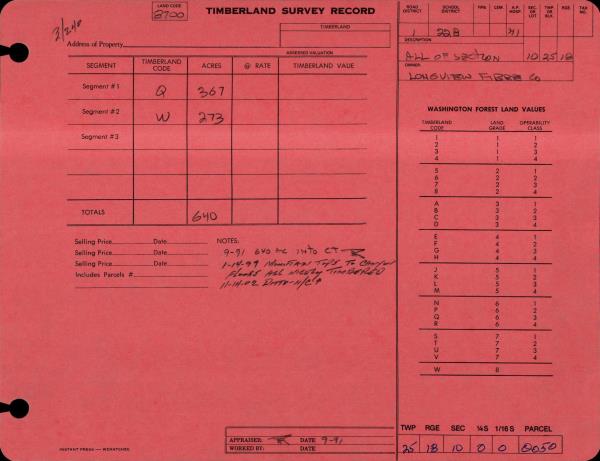 LAND CODE
2700
TIMBERLAND SURVEY RECORD
TIMBERLAND
Address of Property
ASSESSED VALUATION
SEGMENT TIMBERLAND CODE ACRES @ RATE TIMBERLAND VALUE
Segment #1 Q 367
Segment #2 W 273
Segment #3
TOTALS 640
Selling Price Date NOTES:
Selling Price Date 9-91 640 AC INTO CT
Selling Price Date 1-14-99 MOUNTAIN TOPS TO CANYON
Includes Parcels # FLOORS ALL NICELY TIMBERED
11-14-02 DITTO-N/C
APPRAISER: DATE 9-91
WORKED BY: DATE
INSTANT PRESS — WENATCHEE
ROAD DISTRICT SCHOOL DISTRICT FIRE CEM. HOSP. SEC. OR LOT TWP OR BLK. RGE TAX NO.
1 228 10 25 18
DESCRIPTION
ALL OF SECTION
OWNER
LONGVIEW FIBRE CO
WASHINGTON FOREST LAND VALUES
TIMBERLAND CODE LAND GRADE OPERABILITY CLASS
1 1 1
2 1 2
3 1 3
4 1 4
5 2 1
6 2 2
7 2 3
8 2 4
A 3 1
B 3 2
C 3 3
D 3 4
E 4 1
F 4 2
G 4 3
H 4 4
J 5 1
K 5 2
L 5 3
M 5 4
N 6 1
P 6 2
Q 6 3
R 6 4
S 7 1
T 7 2
U 7 3
V 7 4
W 8
TWP RGE SEC ¼S 1/16 S PARCEL
25 18 10 0 0 0050